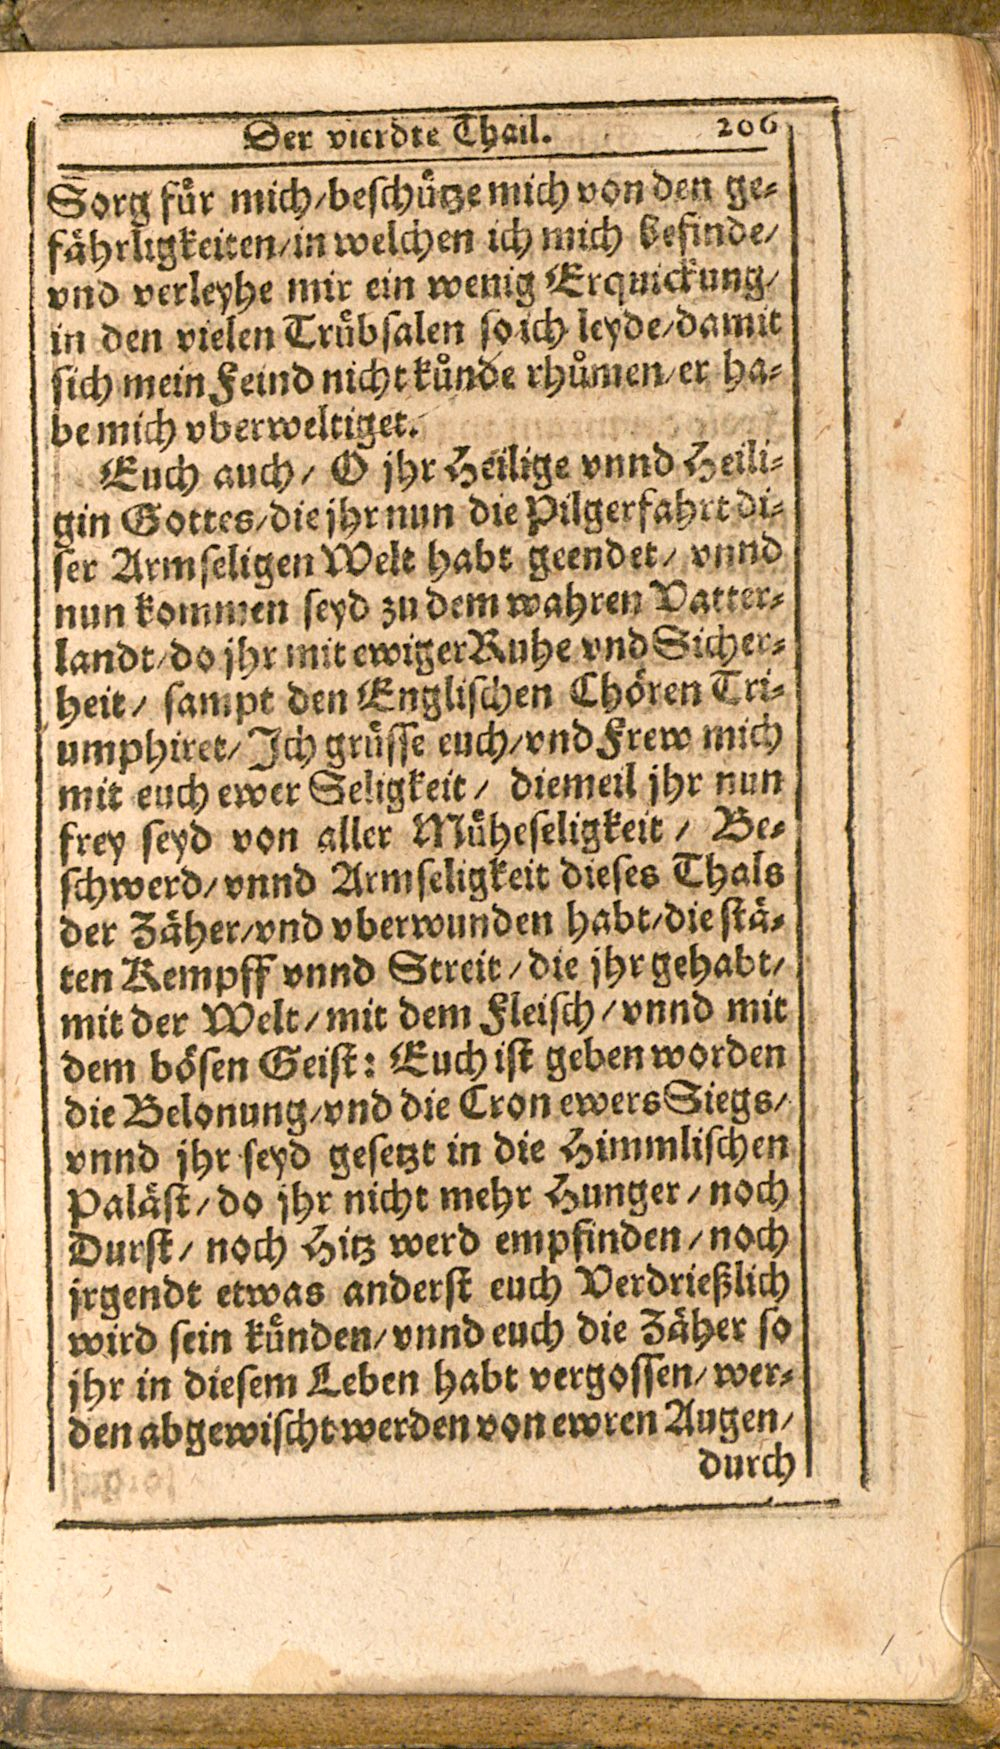 Der vierdte Thail. 206
Sorg fuͤr mich/beschuͤtze mich von den ge-
faͤhrligkeiten/in welchen ich mich befinde/
vnd verleyhe mir ein wenig Erquickung/
in den vielen Truͤbsalen so ich leyde/damit
sich mein Feind nicht kuͤnde rhuͤmen/er ha-
be mich vberweltiget.
Euch auch/ O jhr Heilige vnnd Heili-
gin Gottes/die jhr nun die Pilgerfahrt di-
ser Armseligen Welt habt geendet/ vnnd
nun kommen seyd zu dem wahren Vatter-
landt/do jhr mit ewiger Ruhe vnd Sicher-
heit/ sampt den Englischen Choͤren Tri-
umphiret/Ich gruͤsse euch/vnd Frew mich
mit euch ewer Seligkeit/ diemeil jhr nun
frey seyd von aller Muͤheseligkeit/ Be-
schwerd/vnnd Armseligkeit dieses Thals
der Zaͤher/vnd vberwunden habt/die staͤ-
ten Kempff vnnd Streit/die jhr gehabt/
mit der Welt/mit dem Fleisch/vnnd mit
dem boͤsen Geist: Euch ist geben worden
die Belonung/vnd die Cron ewers Siegs/
vnnd jhr seyd gesetzt in die Himmlischen
Palaͤst/do jhr nicht mehr Hunger/noch
Durst/ noch Hitz werd empfinden/noch
jrgendt etwas anderst euch Verdrießlich
wird sein kuͤnden/vnnd euch die Zaͤher so
jhr in diesem Leben habt vergossen/wer-
den abgewischt werden von ewren Augen/
durch